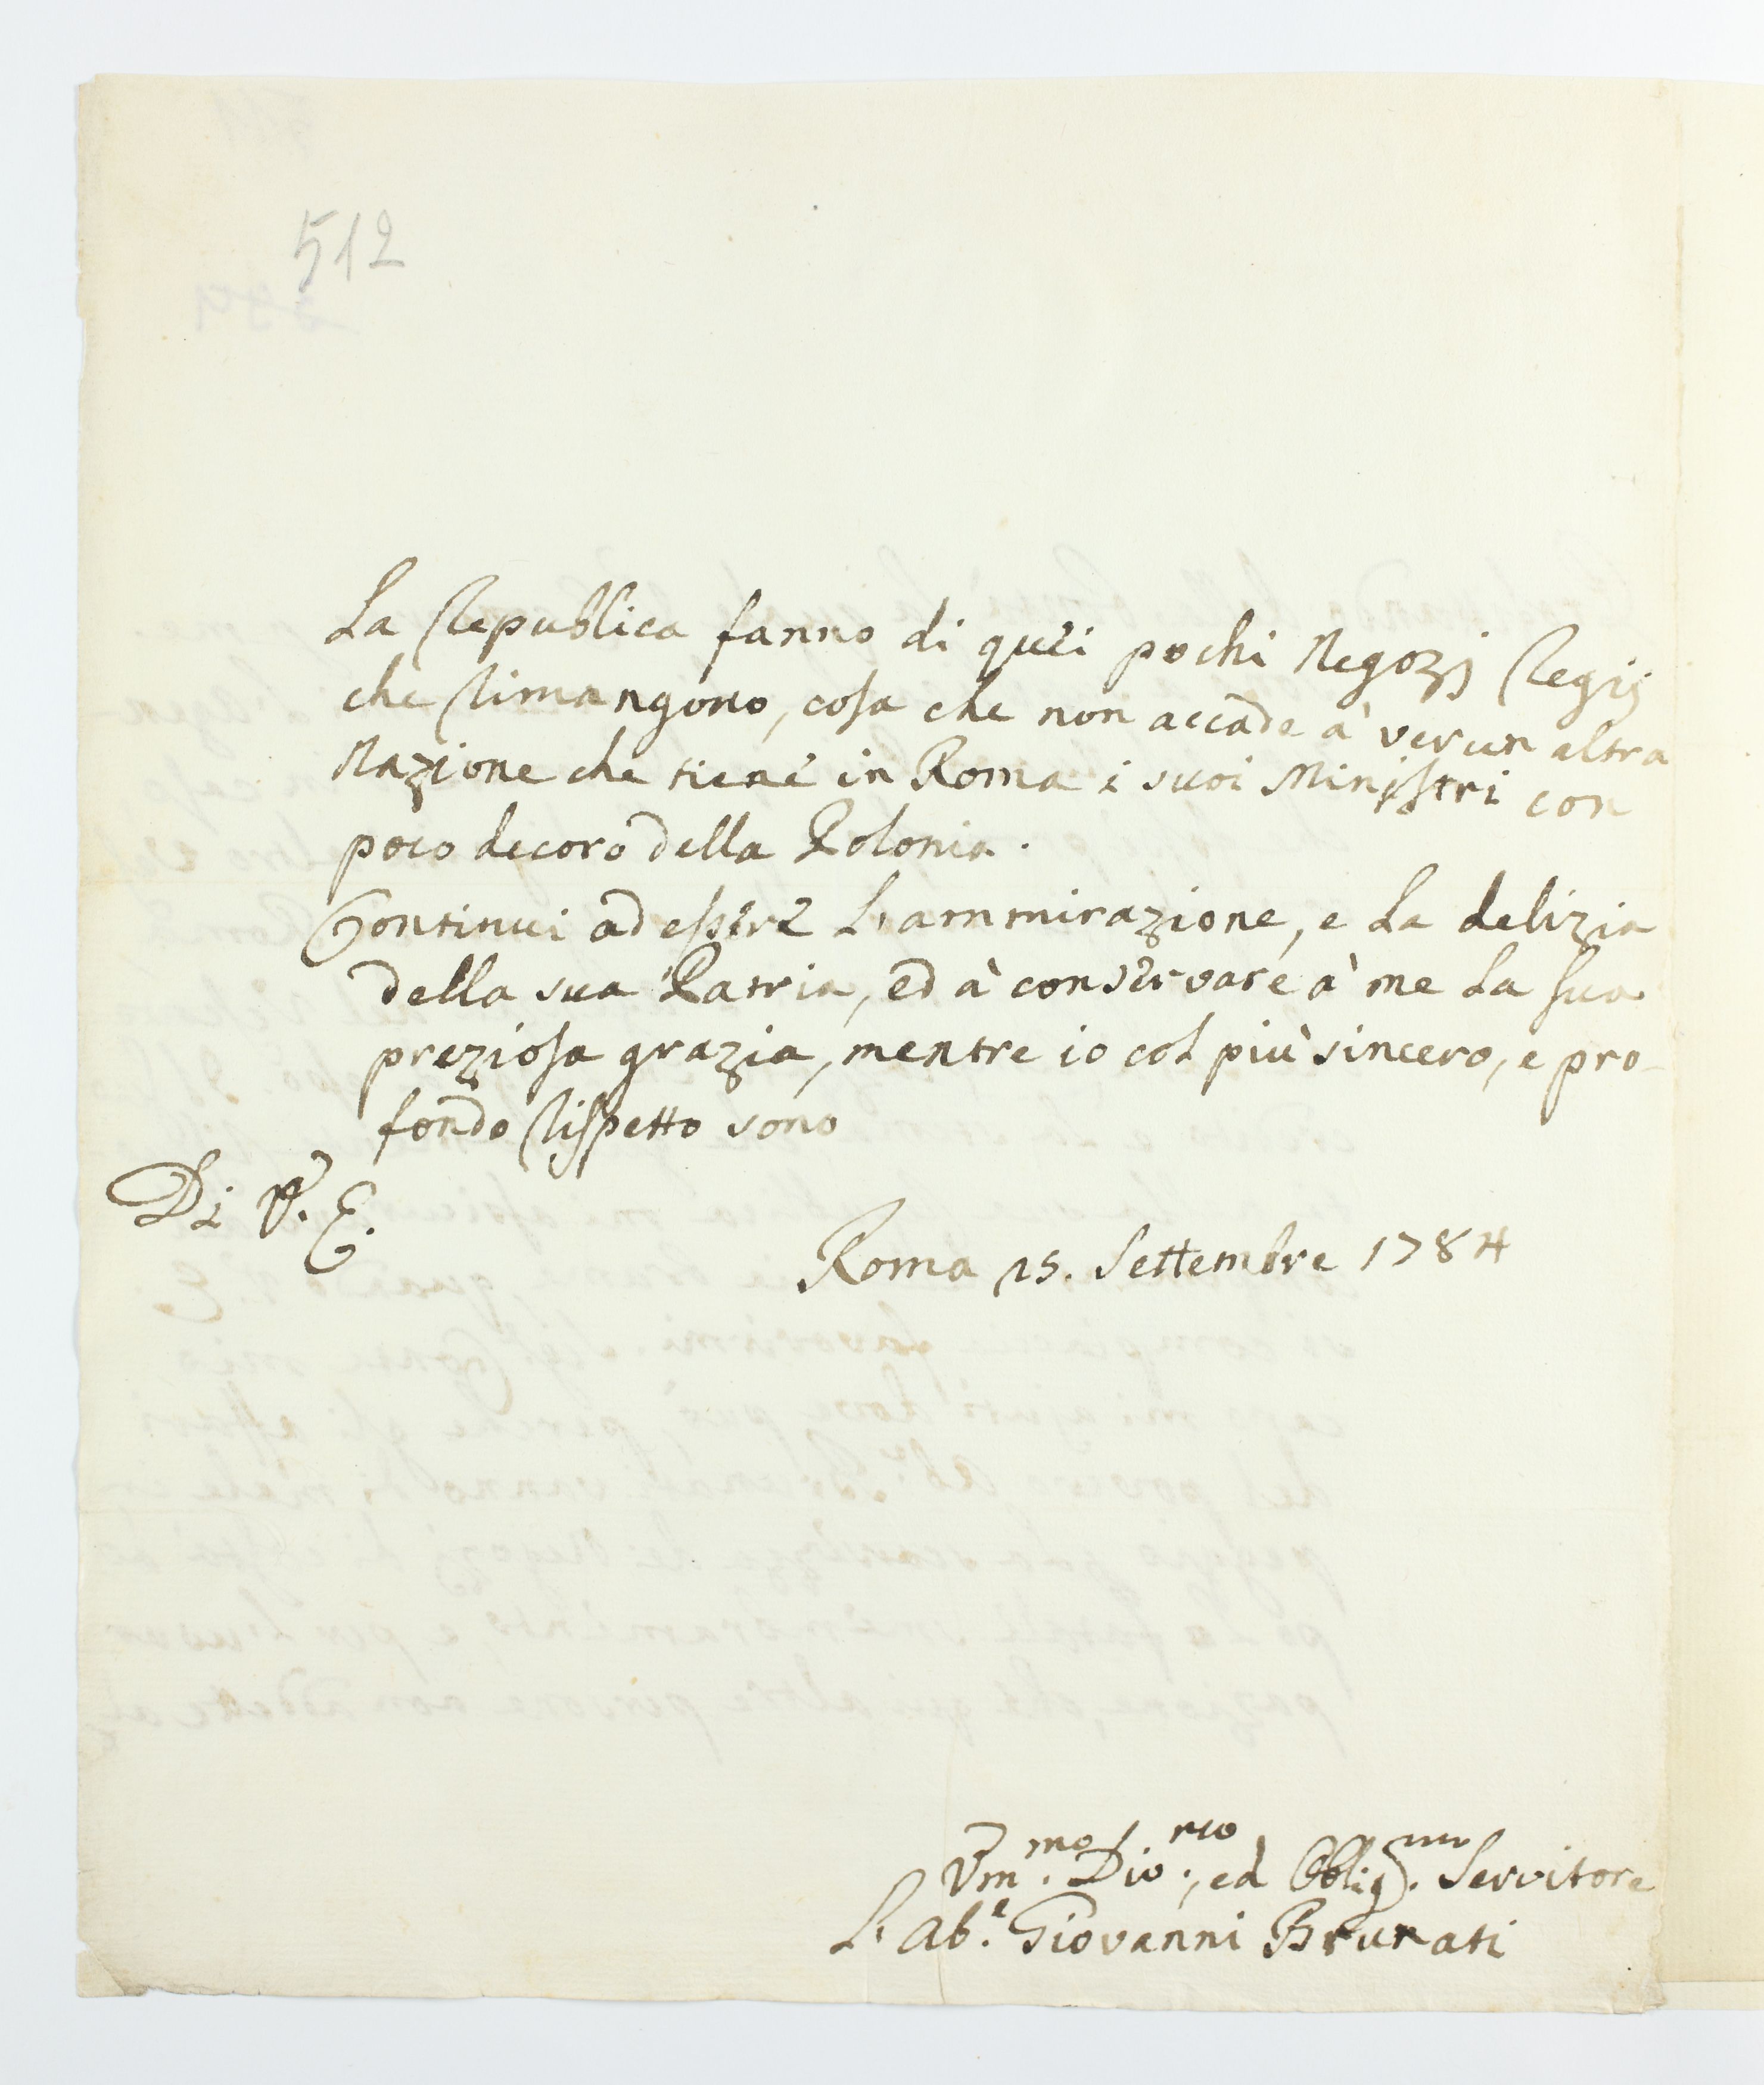 512
La Republica fanno di quei pochi Negozj Regij
che Rimangono, cosa che non accade à verun altra
Nazione che tiene in Roma i suoi Ministri con
poco decoro della Polonia.
Continui ad essere L'ammirazione, e La delizia
della sua Patria, ed à conservare à me La sua
preziosa grazia, mentre io col più sincero, e pro-
fondo Rispetto sono
Di V. E.
Roma 15. Settembre 1784
Um.mo Div.mo, ed Obblig.mo Servitore
L'Ab.e Giovanni Brunati